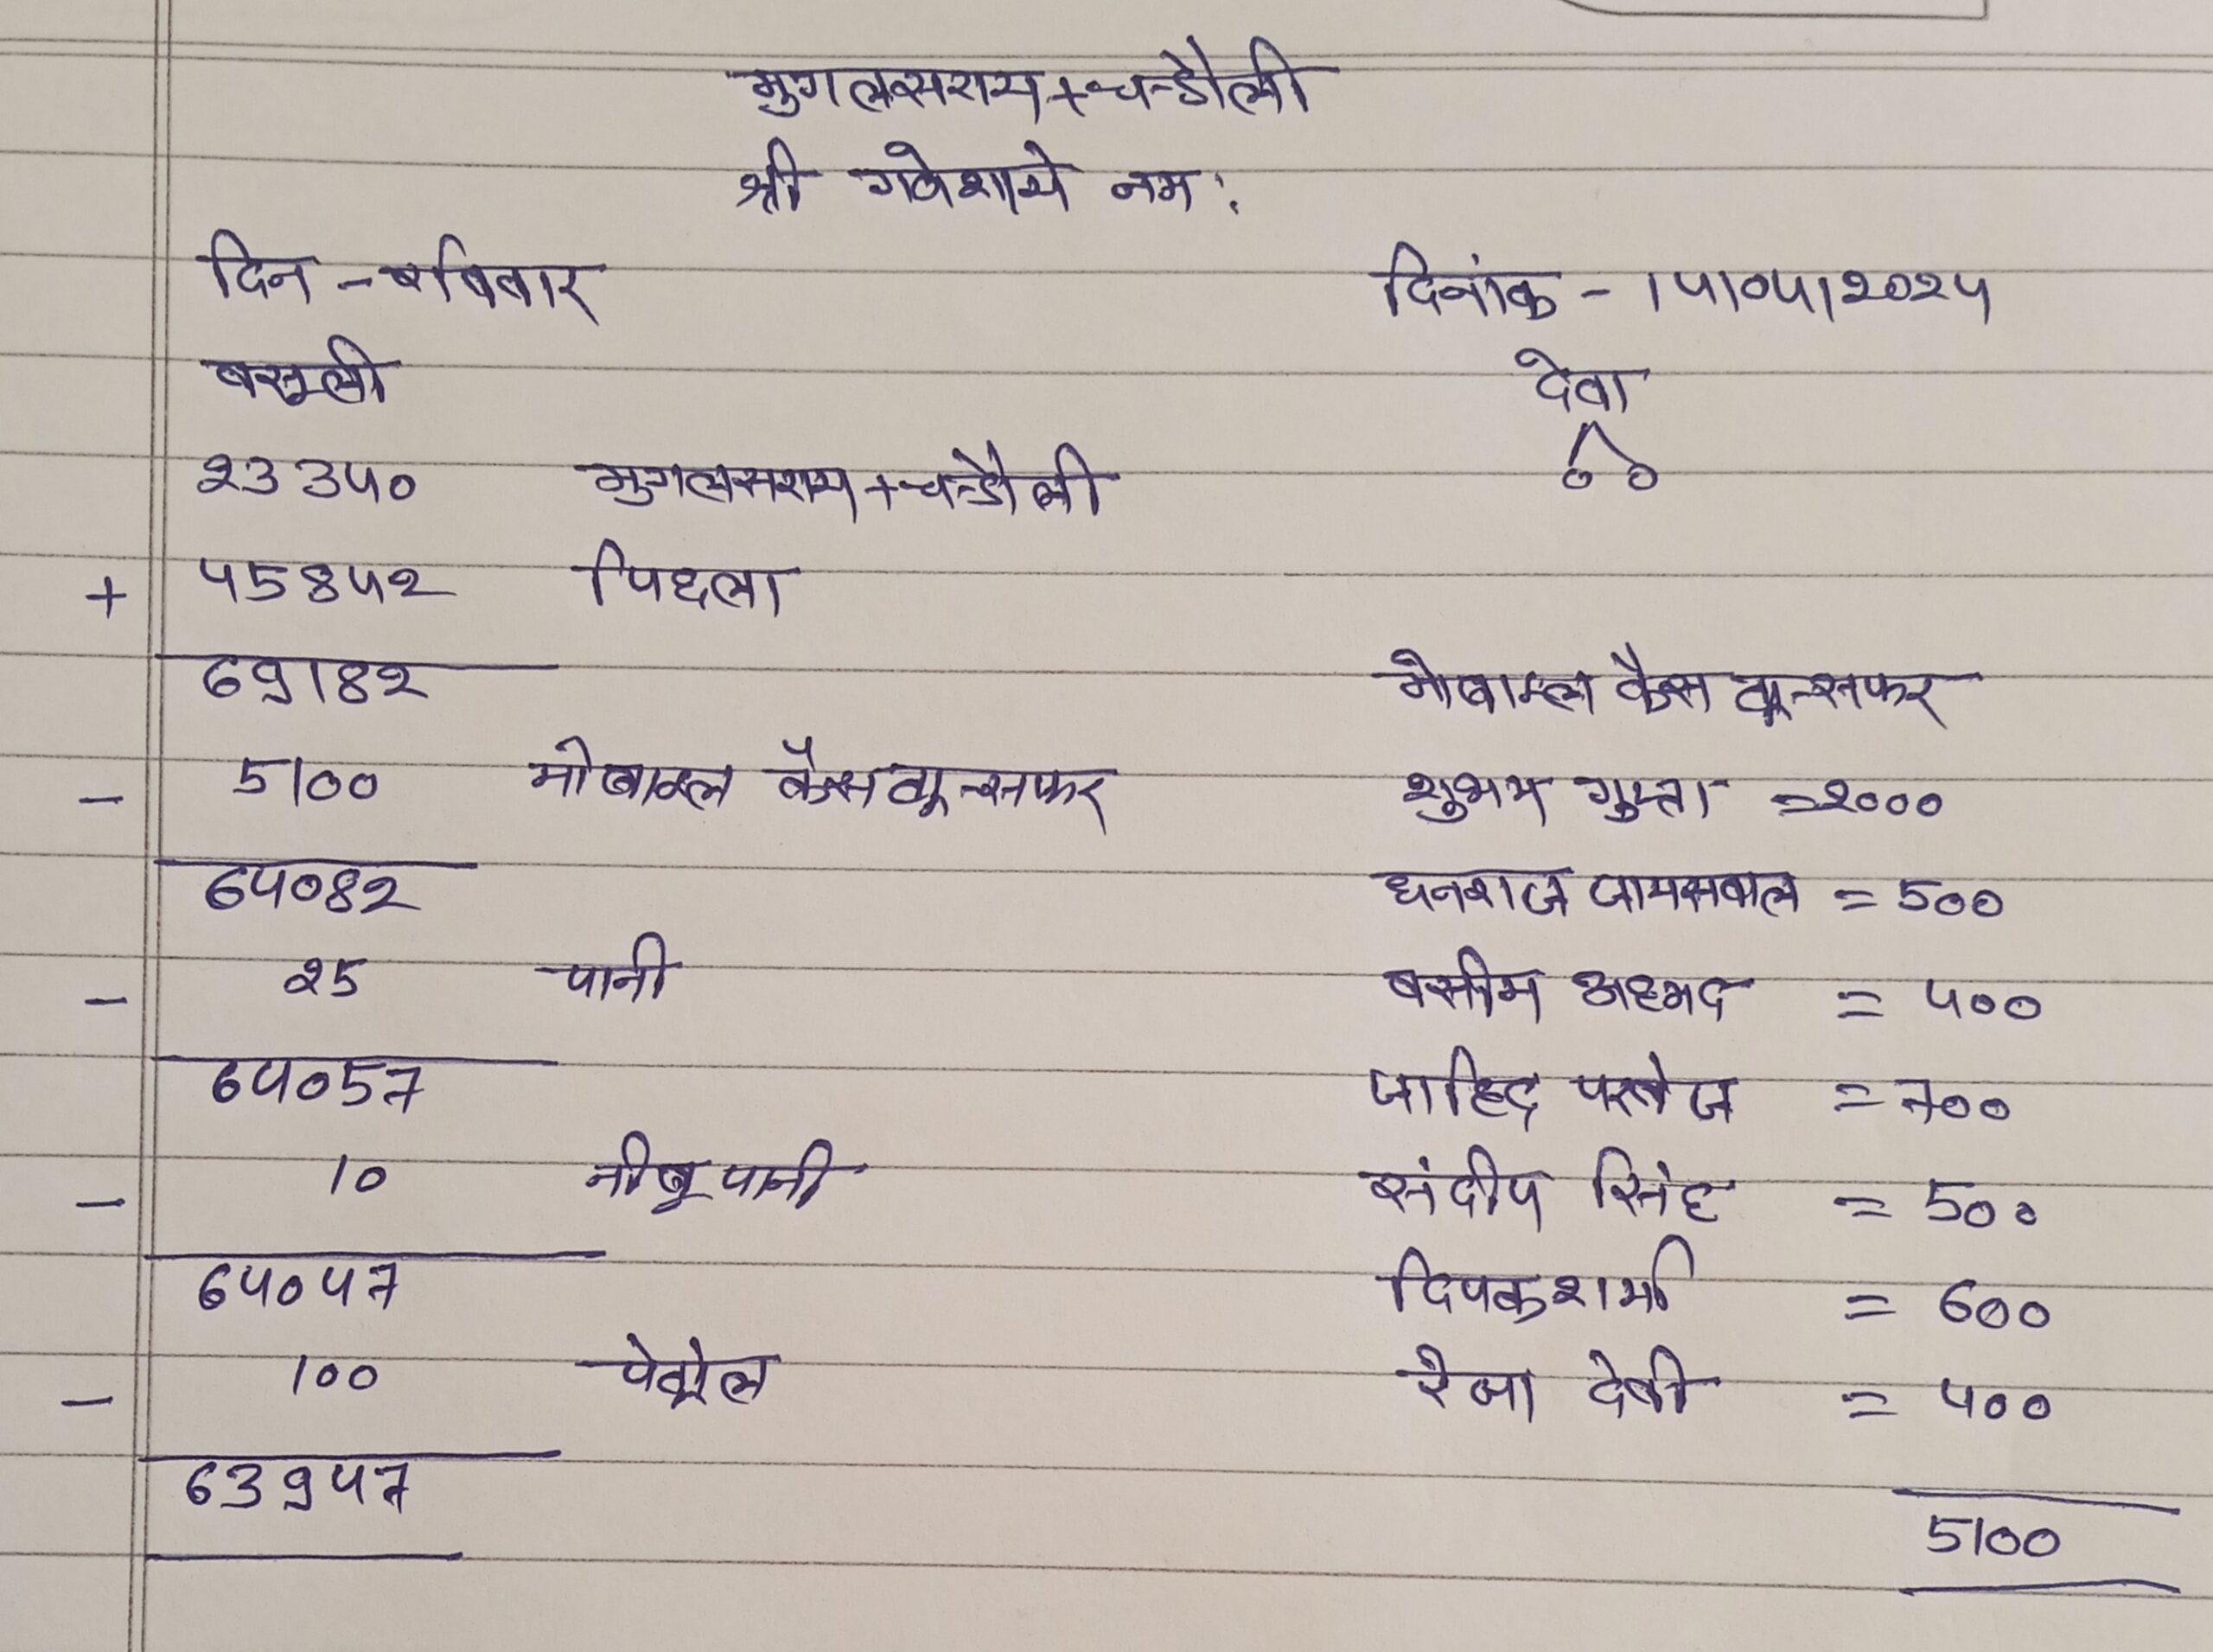 मुगलसराय+चन्डौली
श्री गणेशाये नम:
दिन - रविवार दिनांक - 14/04/2024
वसुली देवा
23340 मुगलसराय+चन्डौली 00
+ 45842 पिछला
69182 मोबाइल कैस ट्रान्सफर
- 5100 मोबाइल कैस ट्रान्सफर शुभम गुप्ता =2000
64082 धनराज जायसवाल = 500
- 25 पानी वसीम अहमद = 400
64057 जाहिद परवेज = 700
- 10 नीबू पानी संदीप सिंह = 500
64047 दिपक शर्मा = 600
- 100 पेट्रोल रेजा देवी = 400
63947
5100